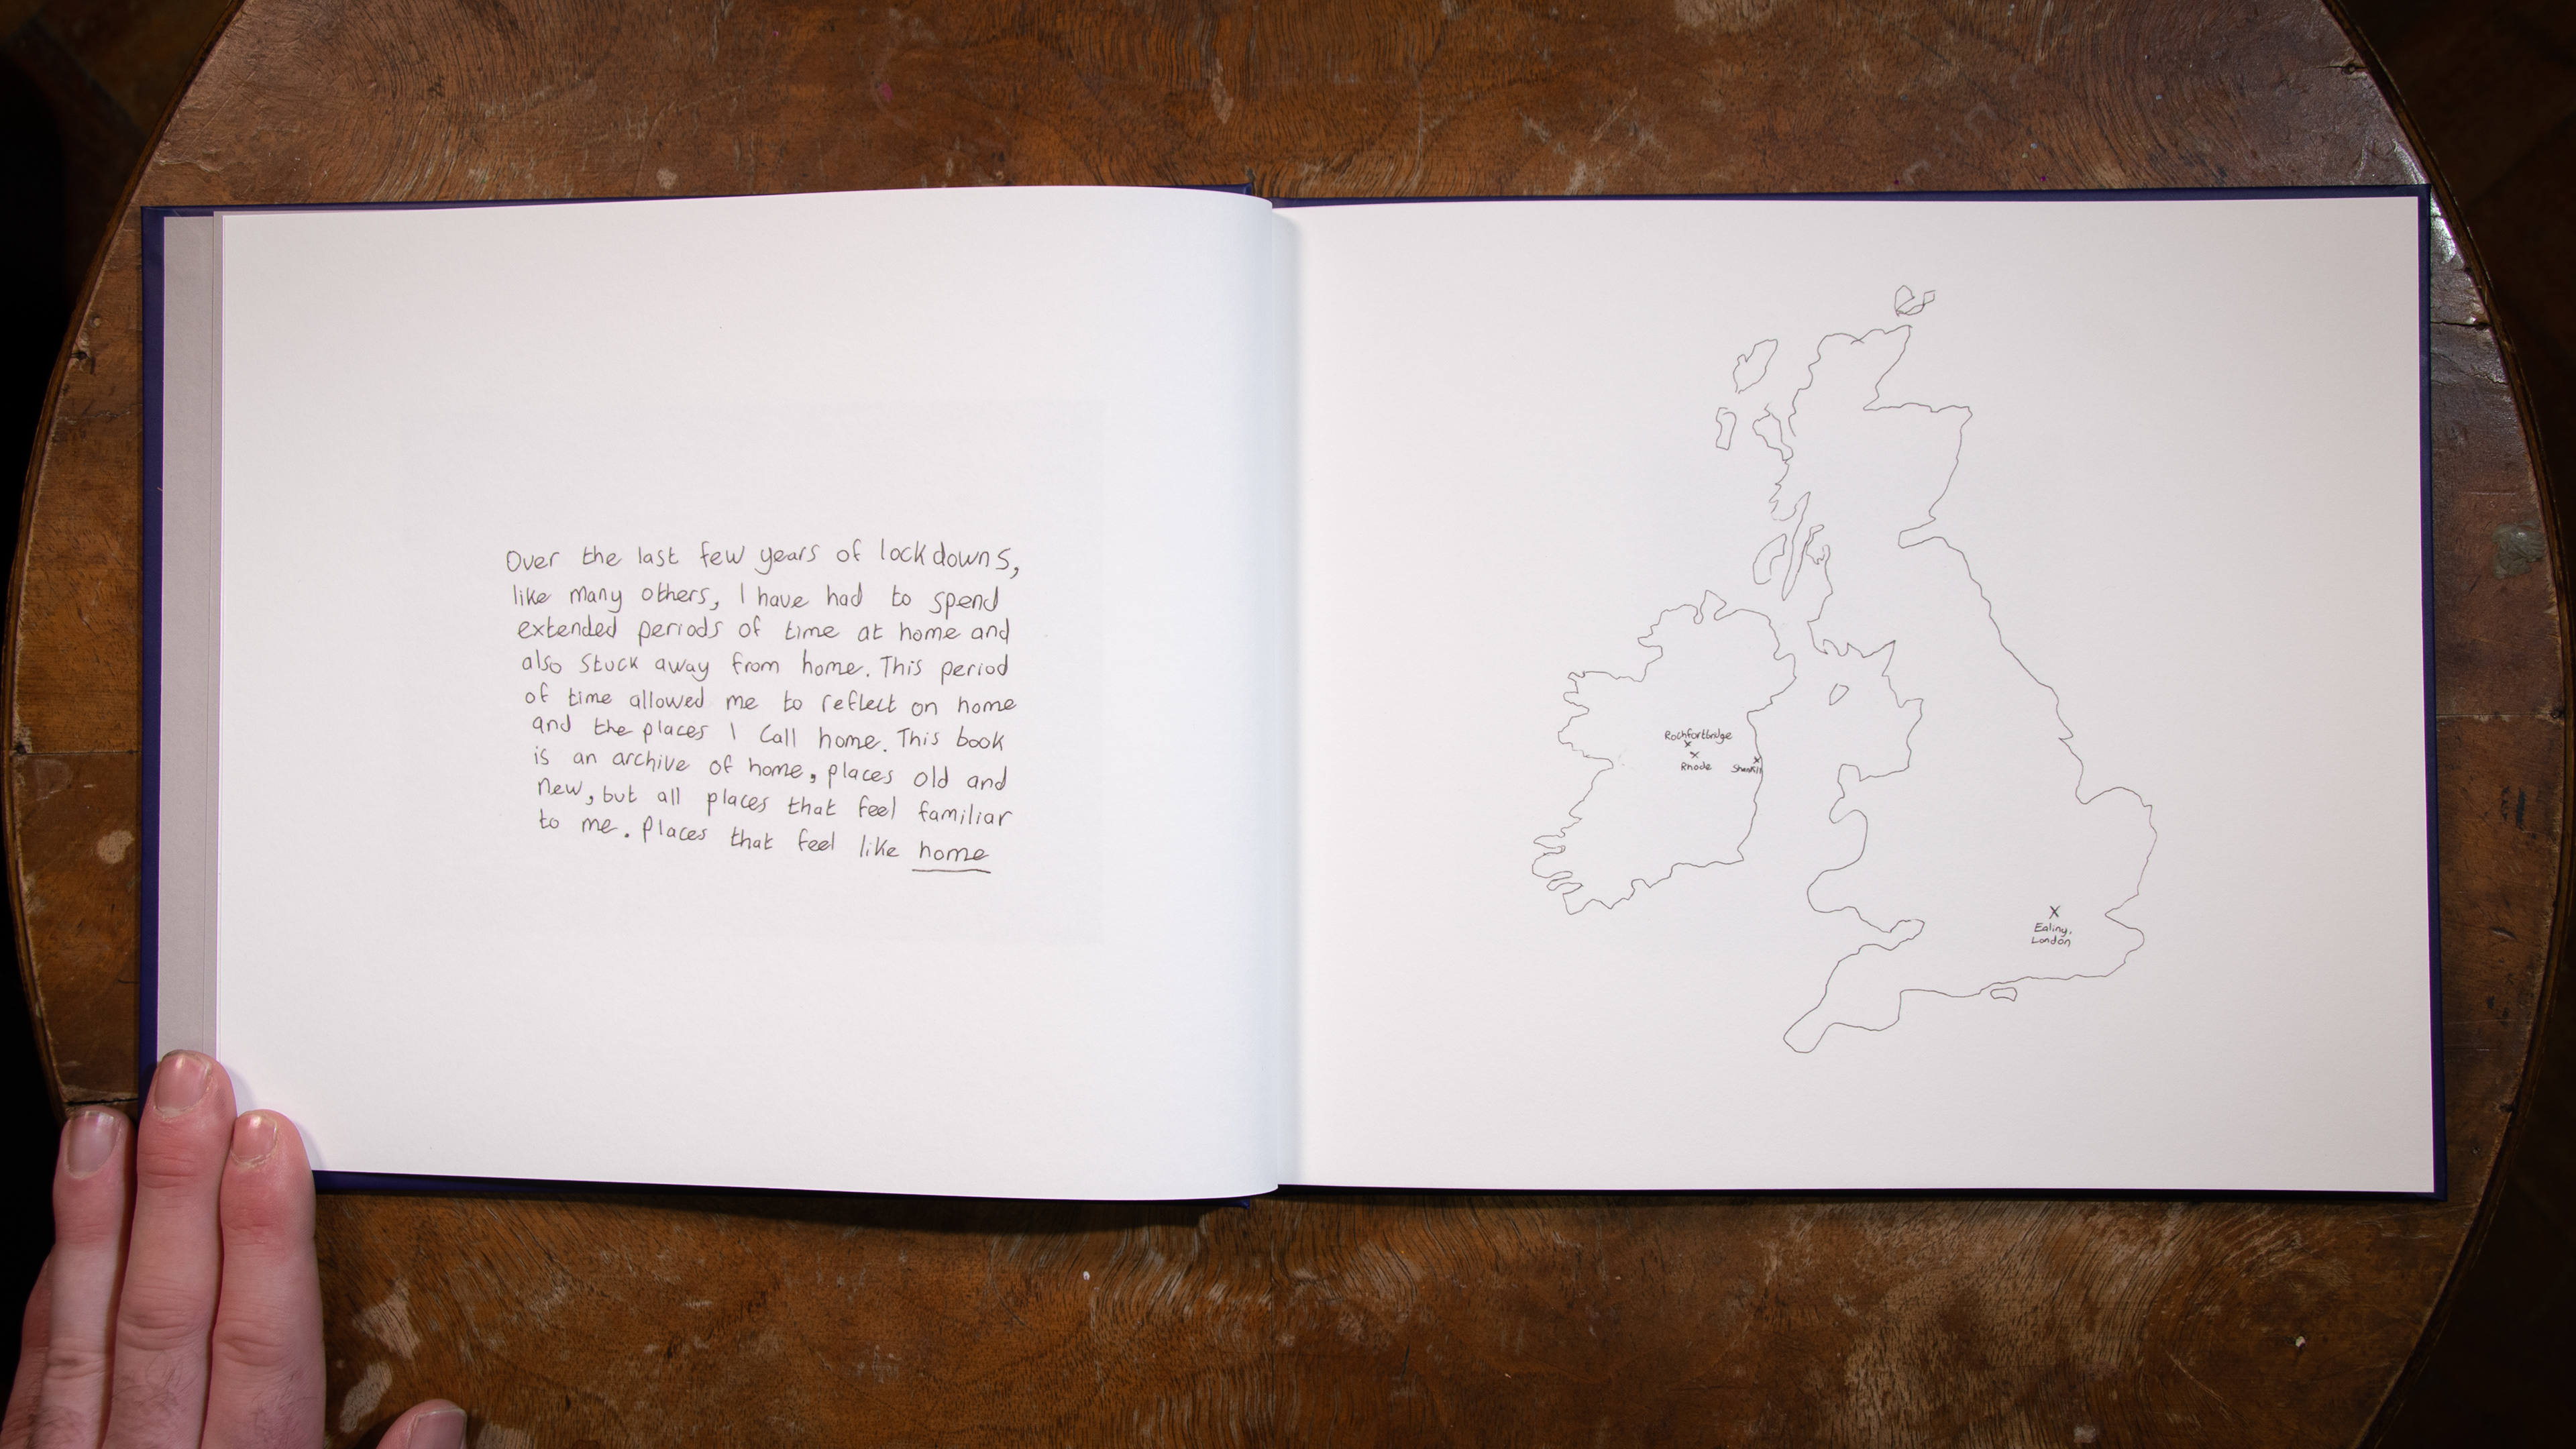 Over the last few years of lockdowns,
like many others, I have had to spend
extended periods of time at home and
also stuck away from home. This period
of time allowed me to reflect on home
and the places I call home. This book
is an archive of home, places old and
new, but all places that feel familiar
to me. Places that feel like home
Rochfortbridge
Rhode
Shankill
Ealing,
London